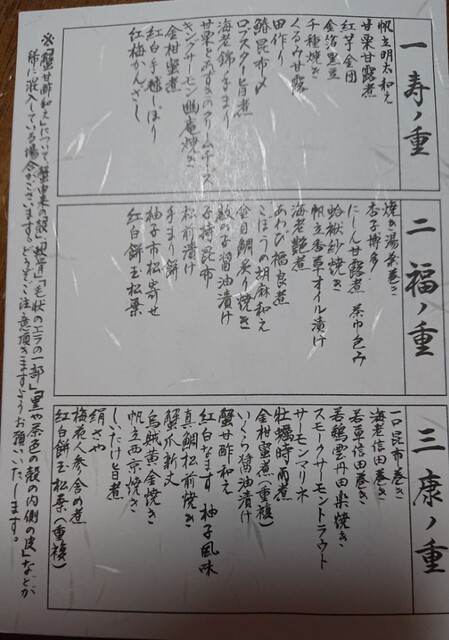 一 寿ノ重
帆立明太和え
甘栗甘露煮
紅芋金団
金箔黒豆
千種焼き
くるみ甘露
田作り
鰆昆布〆
ロブスター旨煮
海老錦手まり
甘栗とあずきのクリームチーズ
キングサーモン幽庵焼き
金柑蜜煮
紅白手毬しぼり
紅梅かんざし
二 福ノ重
焼き湯葉巻き
杏子博多
にしん甘露煮 茶巾包み
蛤袱紗焼き
帆立香草オイル漬け
海老艶煮
あわび福良煮
ごぼうの胡麻和え
金目鯛炙り焼き
数の子醤油漬け
子持昆布
松前漬け
手まり餅
柚子市松寄せ
紅白餅玉松葉
三 康ノ重
一口昆布巻き
海老信田巻き
若草信田巻き
若鶏雲丹田楽焼き
スモークサーモントラウト
サーモンマリネ
牡蠣時雨煮
金柑蜜煮(重複)
いくら醤油漬け
蟹甘酢和え
紅白なます 柚子風味
真鯛松前焼き
蟹爪新丈
烏賊黄金焼き
帆立西京焼き
しいたけ旨煮
絹さや
梅花人参含め煮
紅白餅玉松葉(重複)
※「蟹甘酢和え」について、蟹由来の「殻」「軟骨」「毛状のエラの一部」「黒や茶色の殻の内側の皮」などが
稀に混入している場合がございます。どうぞご注意頂きますようお願いいたします。